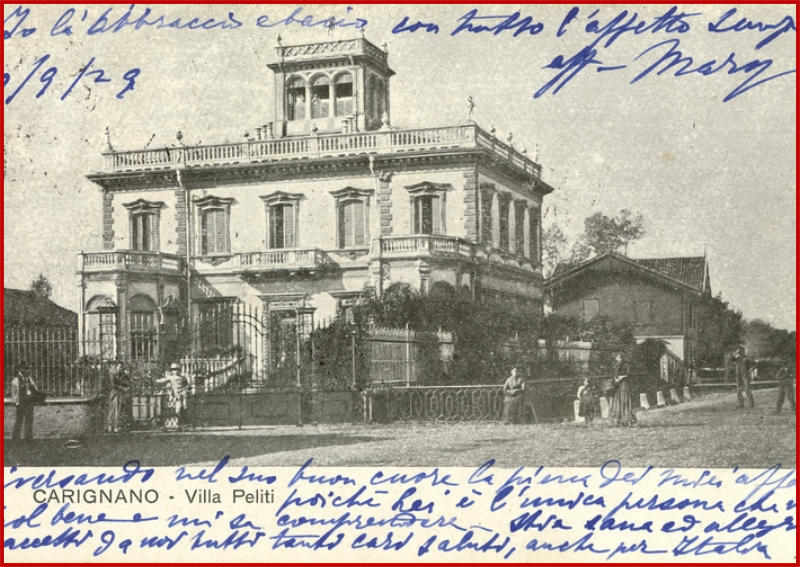 Io la abbraccio e bacio con tutto l'affetto
aff- Mary
9/9/29
versando nel suo buon cuore la piena dei miei
CARIGNANO - Villa Peliti
poiché Lei è l'unica persona che
vol bene e mi sa comprendere. Stia sana ed allegra
accetti da noi tutti tanti cari saluti, anche per